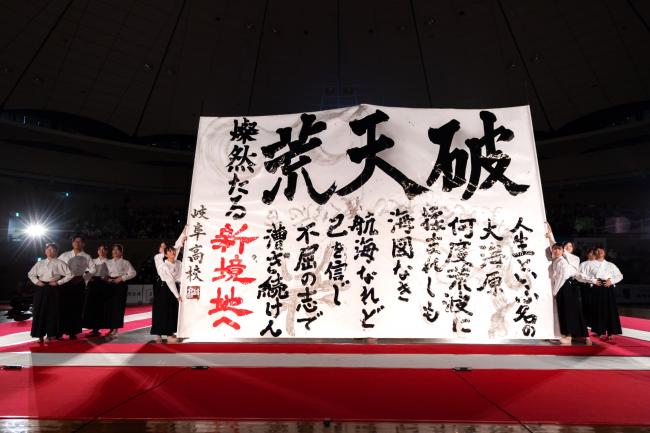 破天荒
人生という名の
大海原
何度荒波に
揉まれしも
海図なき
航海なれど
己を信じ
不屈の志で
漕ぎ続けん
燦然たる
新境地へ
岐阜高校